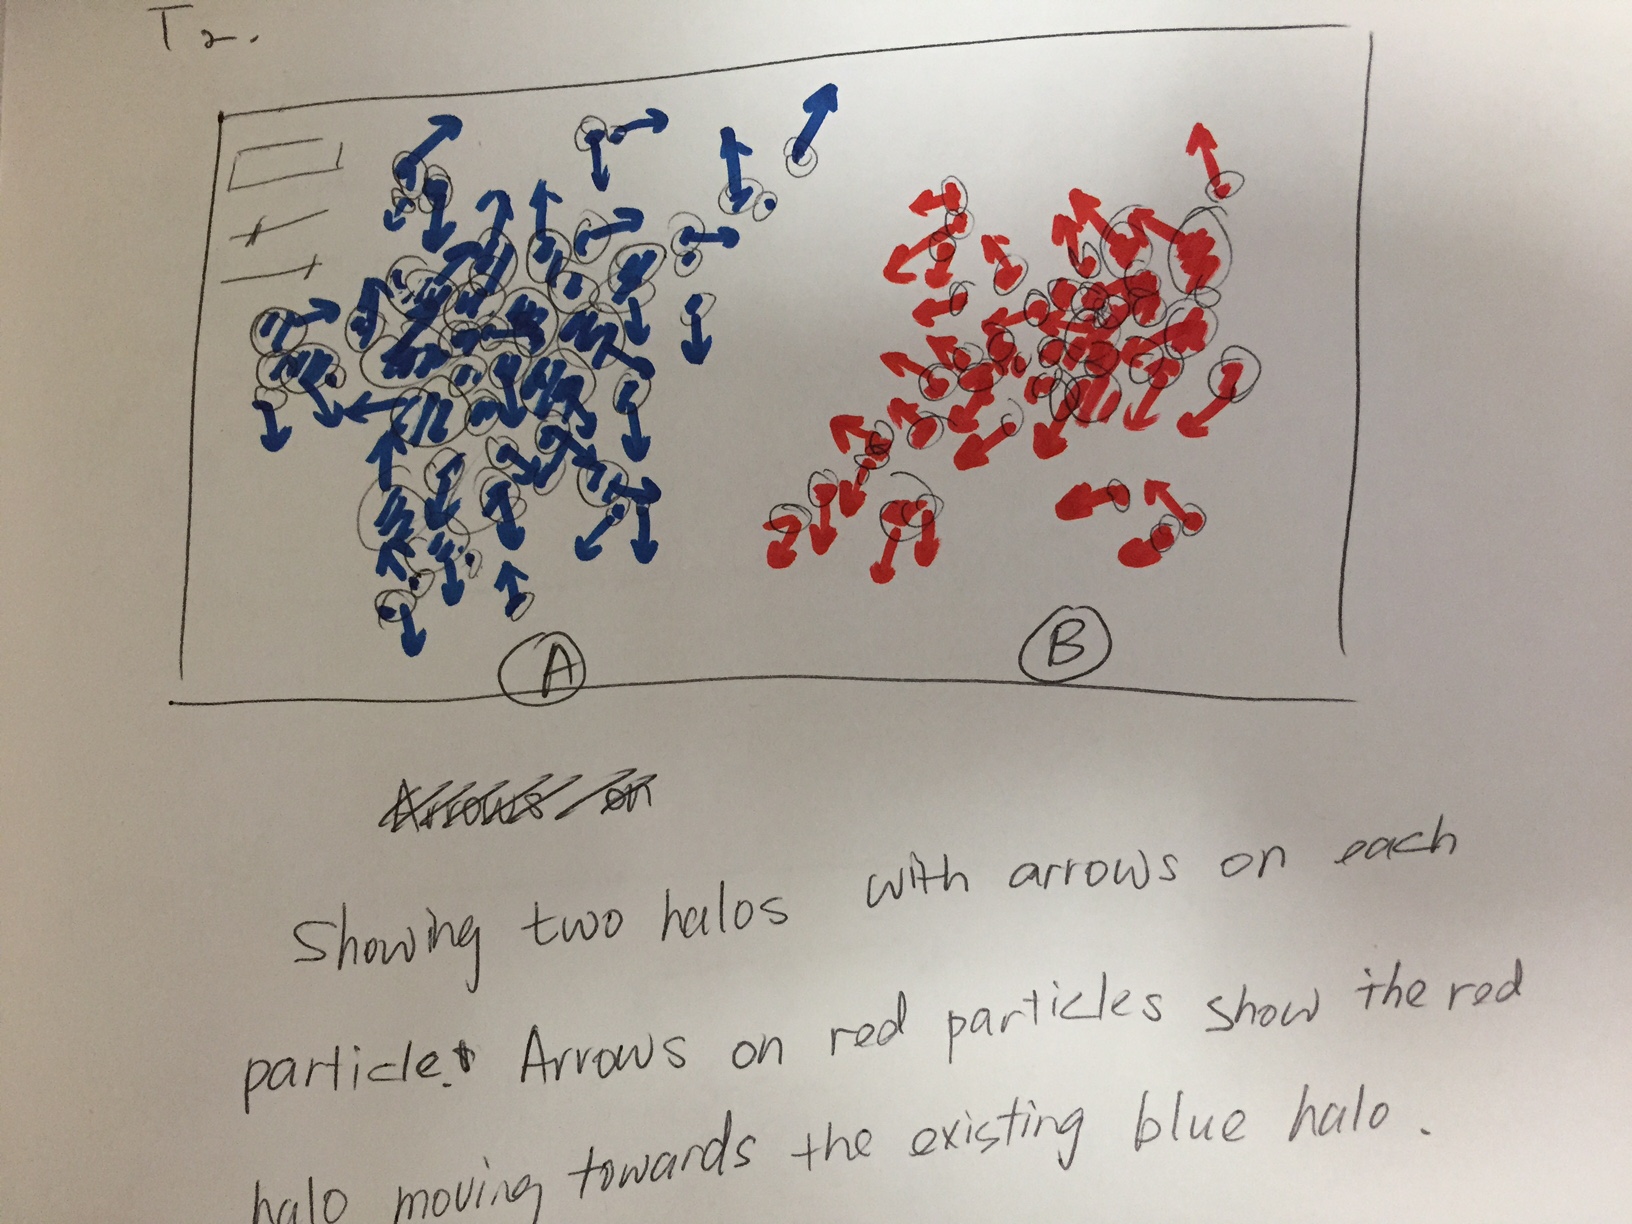 T2.
A
B
Showing two halos with arrows on each
particle. Arrows on red particles show the red
halo moving towards the existing blue halo.